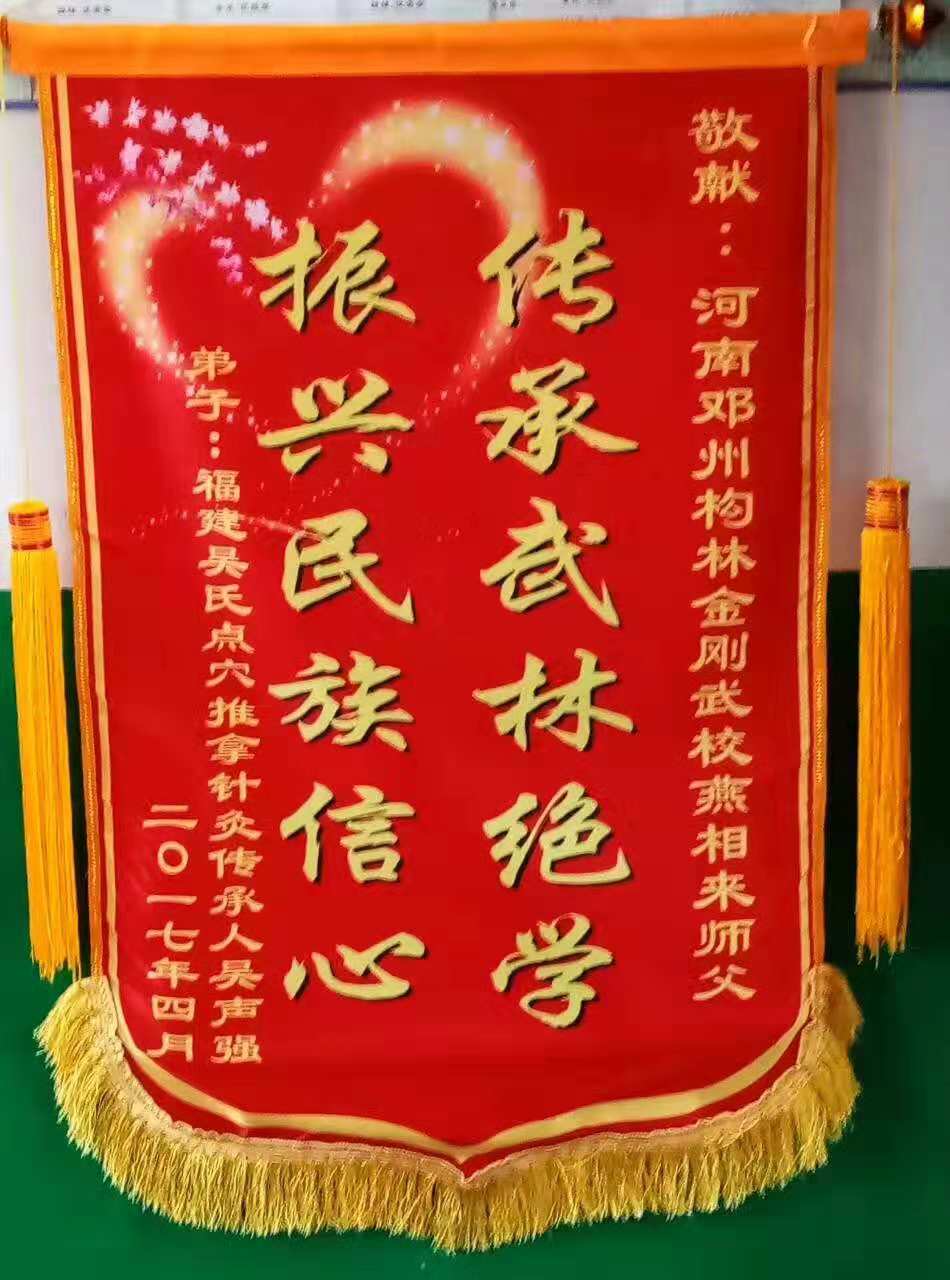 敬献：河南邓州构林金刚武校燕相来师父
传承武林绝学
振兴民族信心
弟子：福建吴氏点穴推拿针灸传承人吴声强
二〇一七年四月